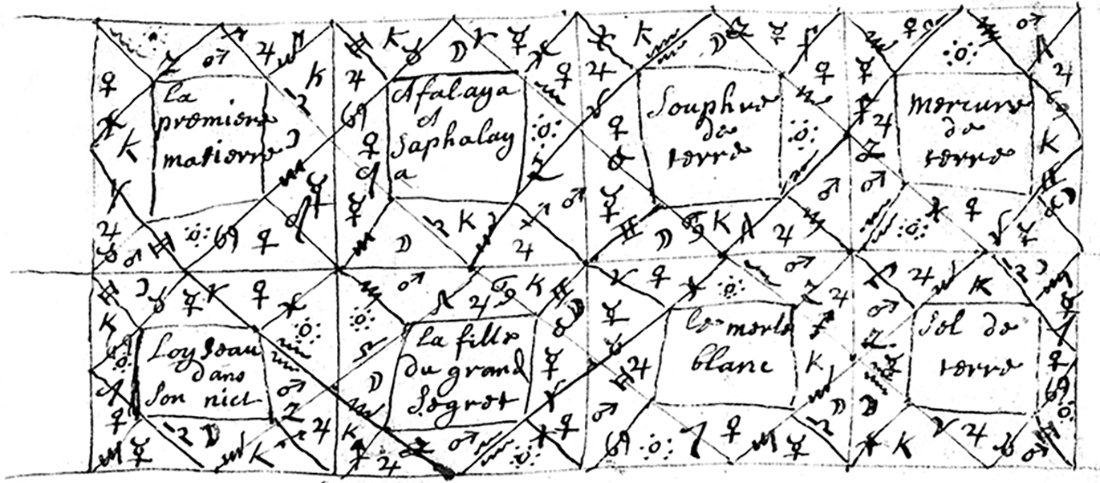 la
premiere
matierre
Afalaya
et
Saphalay
a
Souphre
de
terre
mercure
de
terre
Loyseau
dans
son nict
la fille
du grand
segret
le merle
blanc
Sel de
terre